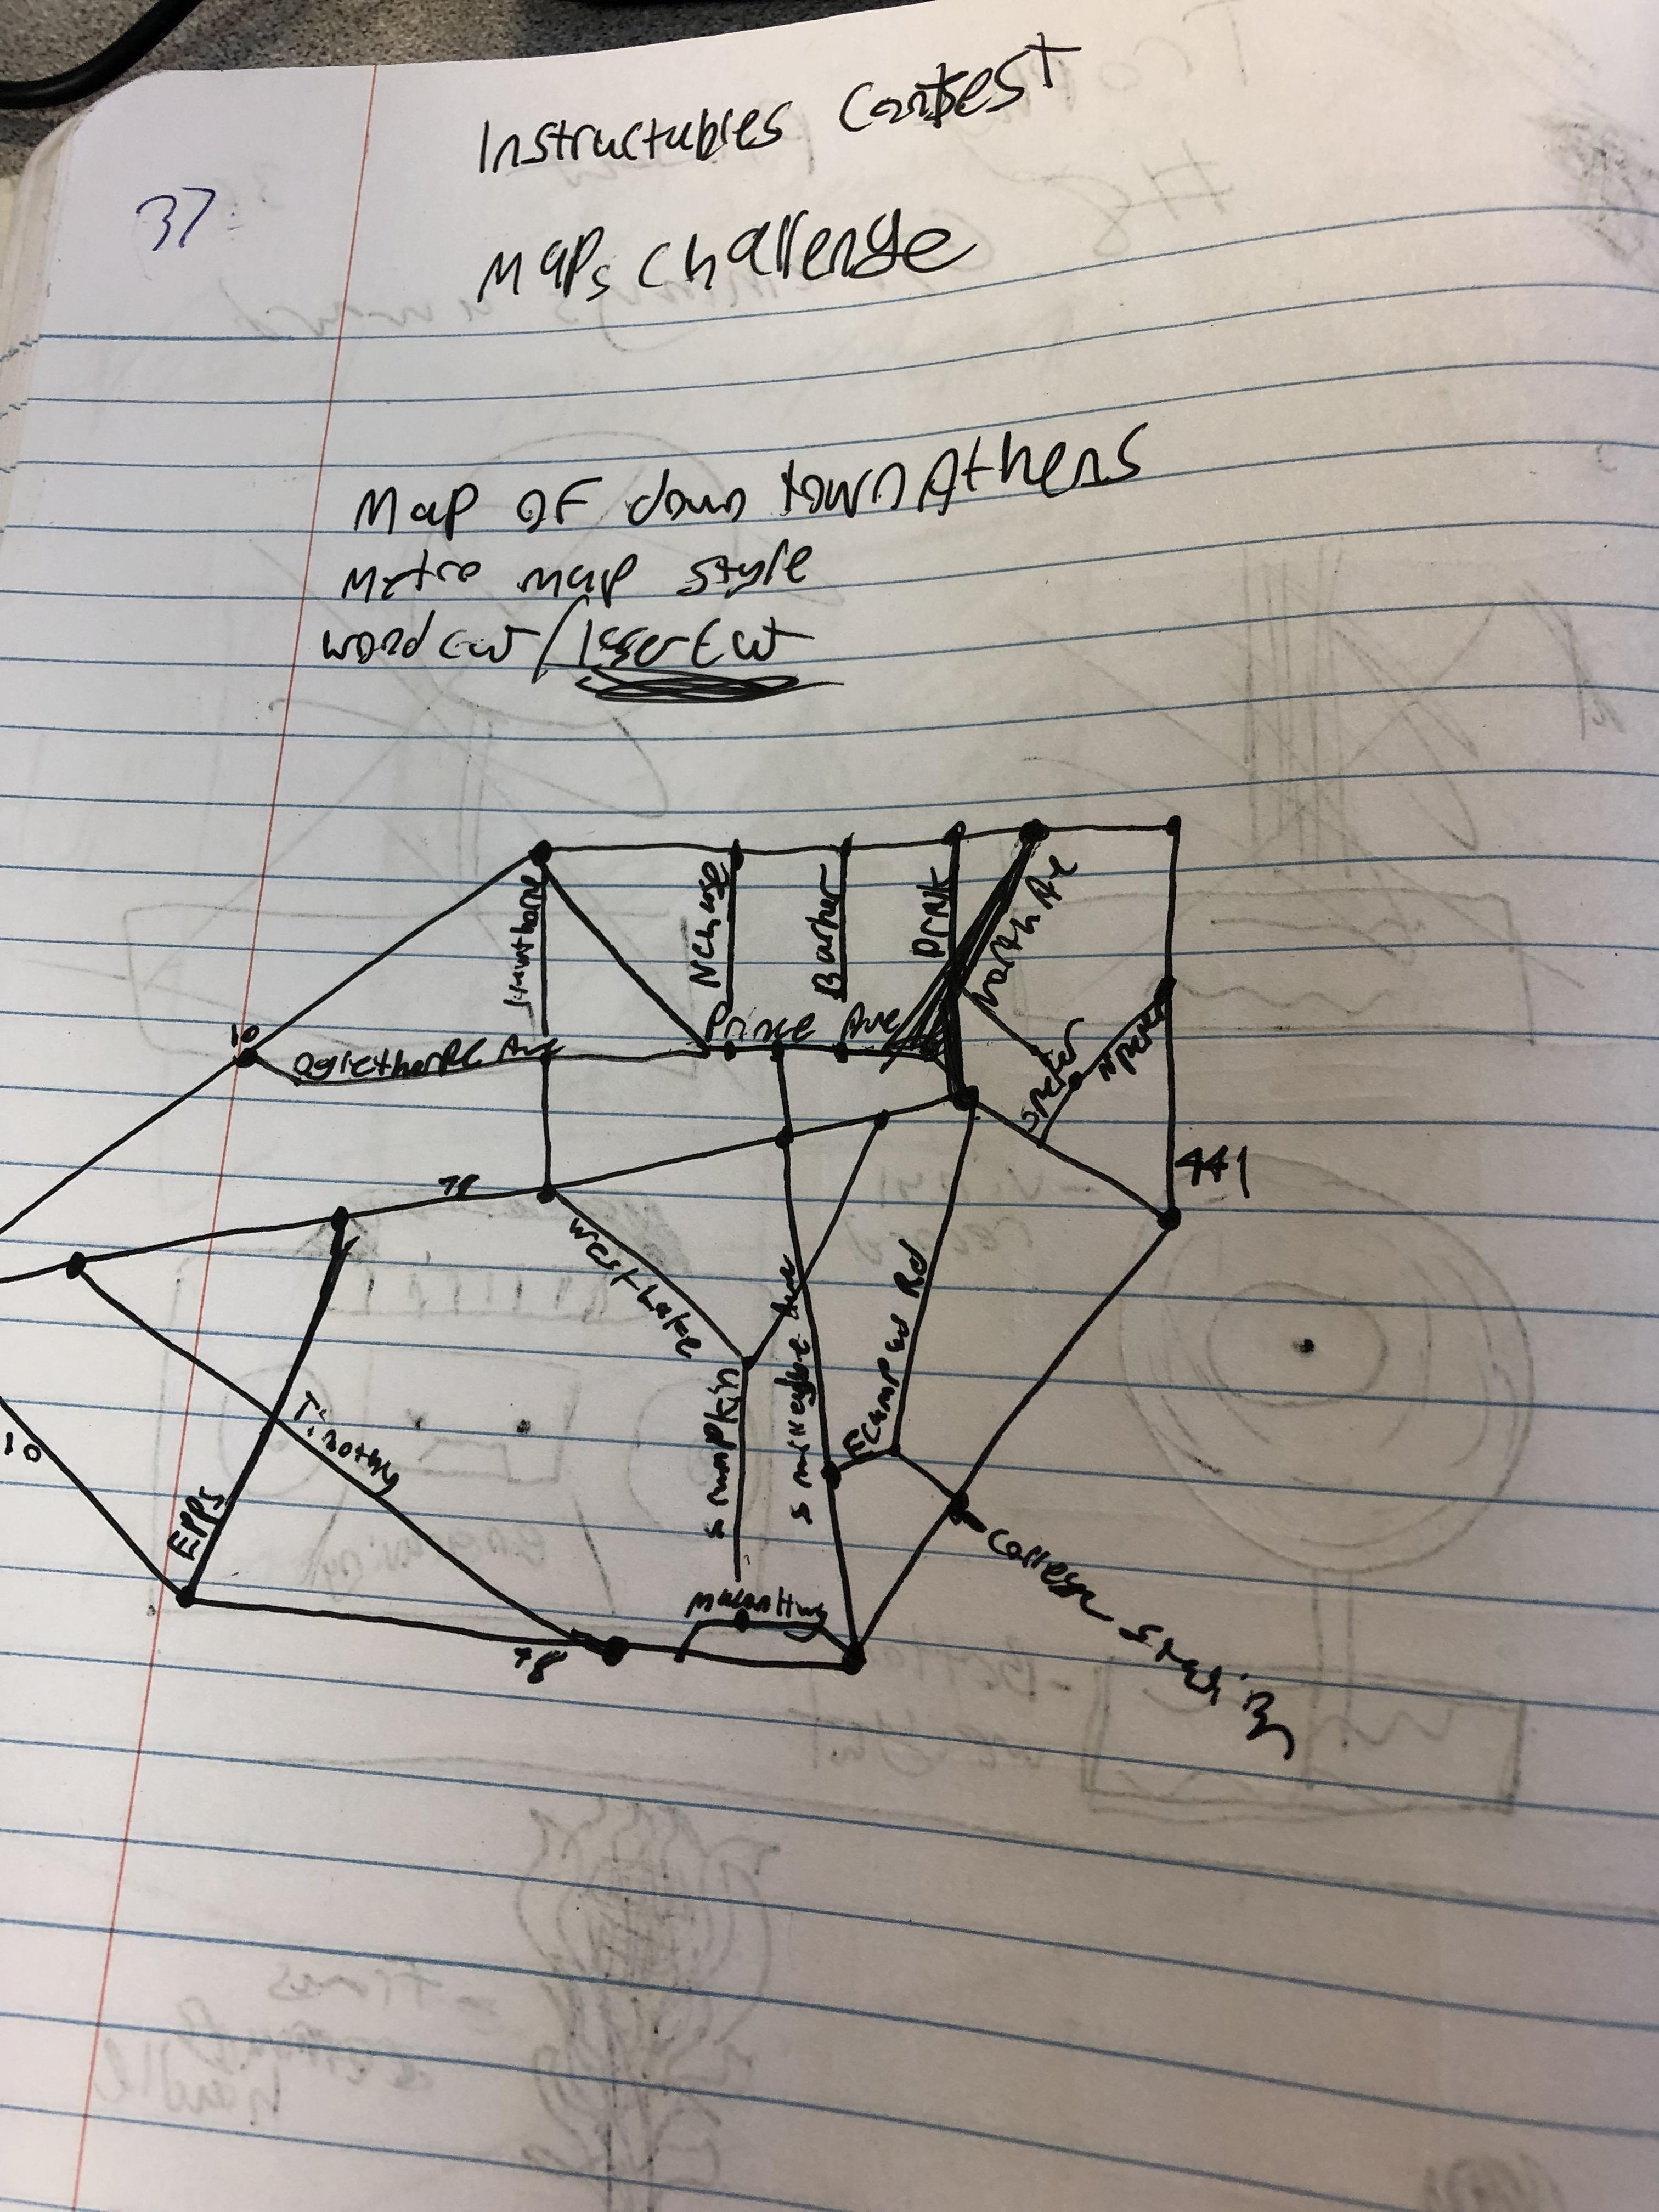 Instructables Contest
37
Maps Challenge
Map of down town Athens
Metro map style
wood cut / Laser Cut
Hawthorne
N Chase
Barber
Pink
North Ave
10
Oglethorpe Ave
Prince Ave
441
78
West Lake
S Milledge Ave
E Campus Rd
S Lumpkin
Timothy
10
Epps
Macon Hwy
78
College Station